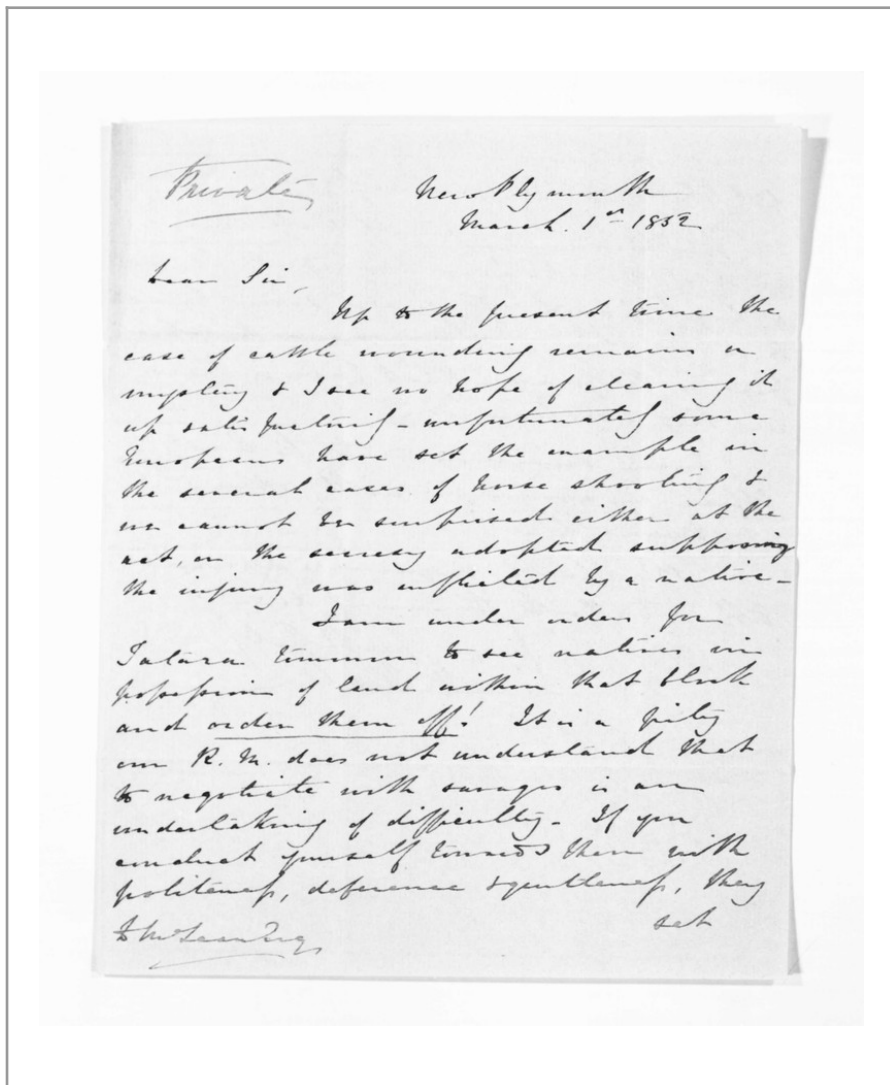 Private
New Plymouth
March. 1st 1852
Dear Sir,
Up to the present time the
case of cattle wounding remains a
mystery & I see no hope of clearing it
up satisfactorily - unfortunately some
Europeans have set the example in
the several cases of horse shooting &
we cannot be surprised either at the
act, or the secresy adopted supposing
the injury was inflicted by a native -
I am under orders for
Tatara tomorrow to see natives in
possession of land within that block
and order them off! It is a pity
our R. M. does not understand that
to negotiate with savages is an
undertaking of difficulty - If you
conduct yourself towards them with
politeness, deference & gentleness, they
set
D McLean Esq